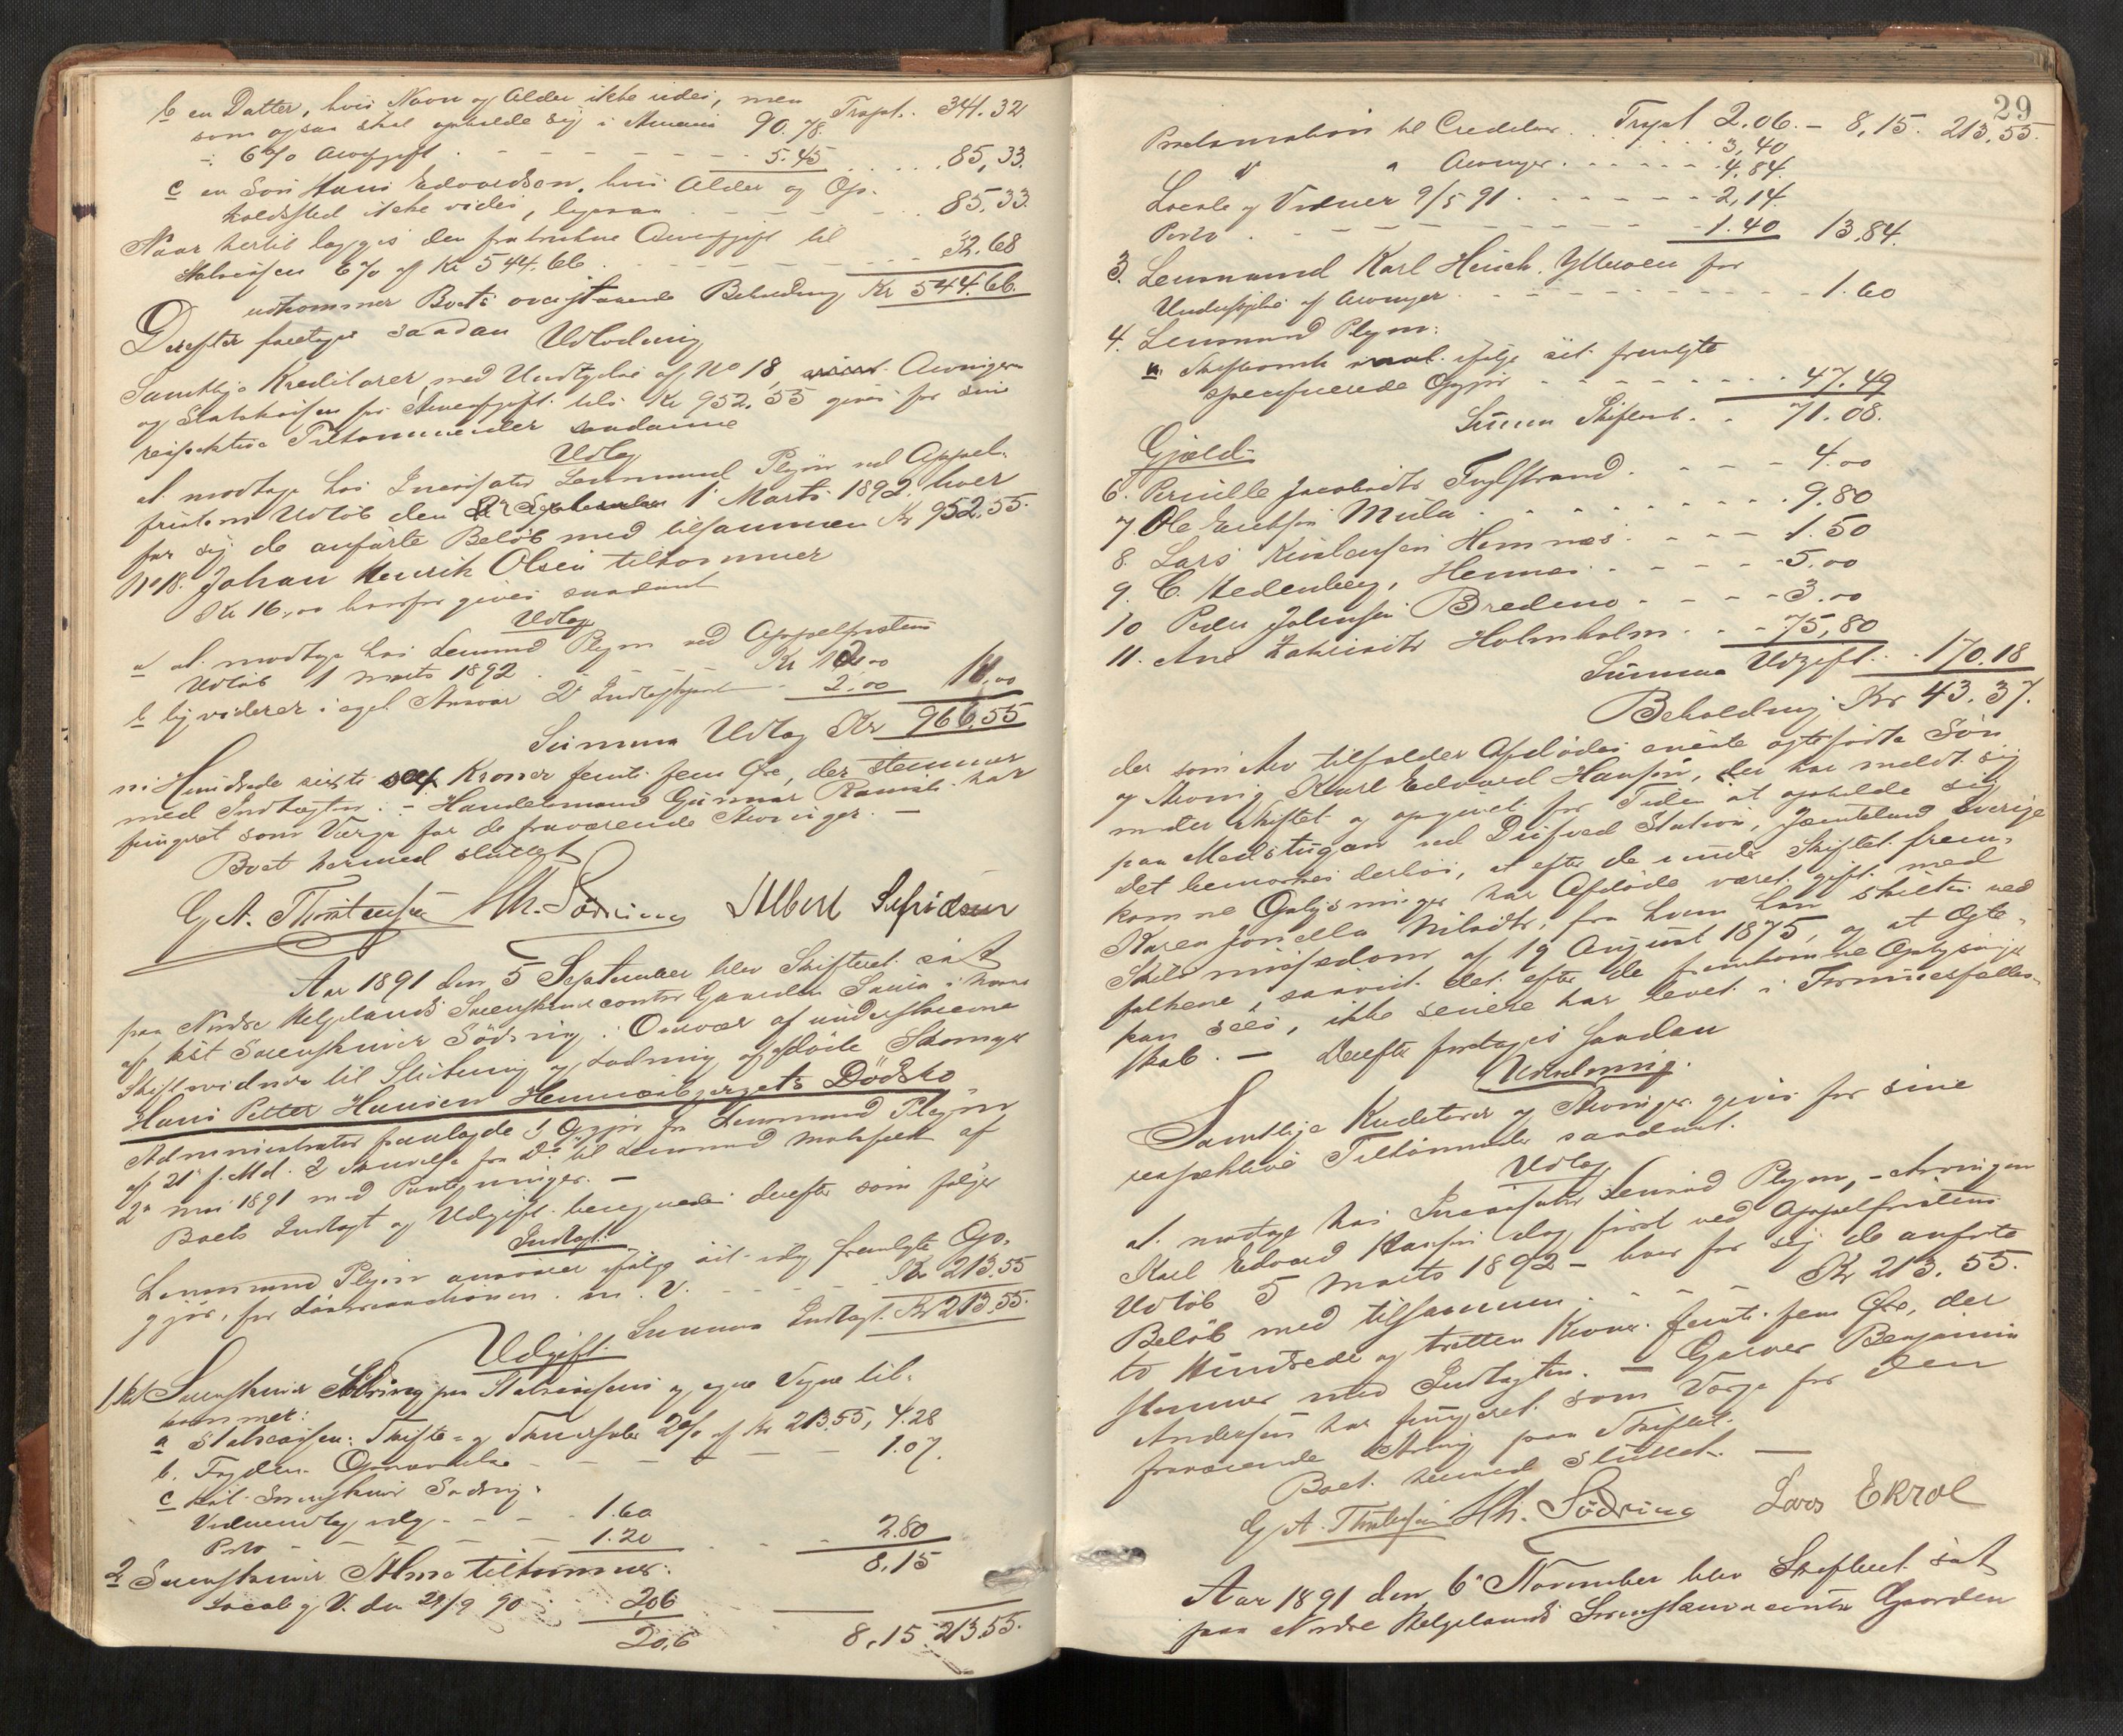 b en Datter, hvis Navn og Alder ikke vides, men Trspt. 341.32
som ogsaa skal opholde sig i Amerika 90.78
÷ 6 % Arvegift 5.45 85,33.
c en Søn Hans Edvardsen, hvis Alder og Op-
holdssted ikke vides, ligesaa 85.33
Naar hertil lægges den fratrukne Arvegift til
Statskassen 6 % af Kr 544.66 32.68
udkommer Boets ovenstaaende Beholdning Kr 544.66
Derefter foretages saadan
Udlodning
Samtlige Kreditorer med Undtagelse af No 18, Arvingerne
og Statskassen for Arveafgift tils. Kr 952.55 gives for sine
respektive Tilkommender saadanne
Udlæg
at modtage hos Incassator Lensmand Plejm ved Appel-
fristens Udløb den 1 Marts 1892 hver
for sig de anførte Beløb med tilsammen Kr 952.55.
No 18. Johan Henrik Olsen tilkommer
Kr 16,00 hvorfor gives saadant
Udlæg
a at modtage hos Lensmand Plejm ved Appelfristens
Udløb 1 marts 1892 Kr 12.00
b liqviderer i eget Ansvar 2.00
Summa Udlæg Kr 966.55
ni Hundrede sexti sex Kroner femti fem Øre, der stemmer
med Indtægten. – Handelsmand Gunnar har
fungeret som Værge for de fraværende Arvinger. –
Boet hermed sluttet
G. A. Thorstensen Hh. Södring Albert Sefridsen
Aar 1891 den 5 September blev Skifteret sat
paa Nordre Helgelands Sorenskrivercontor Gaarden i Mo
af kst Sorenskriver Södring i Overvær af understaaende
Skiftevidner til Slutning og Lodning af afdøde
Hans Peter Hansen Hemnesbjergets Dödsbo
Administrator fremlagde 1 Opgjør fra Lensmand Plejm
af 21 f. Md. 2 Skrivelse fra D.o til Lensmand af
2 mai 1891 med Paategninger. –
Boets Indtægt og Udgift beregnedes derefter som følger
Indtægt:
Lensmand Plejm ansvarer ifølge sit idag fremlagte Op-
gjør, for m. v. Kr 213.55
Summa Indtægt Kr 213.55.
Udgift
1. kst Sorenskriver Södring paa Statskassens og egne Vegne til-
kommer:
a Statskassen: Skifte- og 2% af Kr 213.55, 4.28
b. 1.07.
c kst. Sorenskriver Södring:
1.60
Porto 1.20 2.80
8,15
2 Sorenskriver tilkommer:
Locale og V. den 29/9 90 2,06
20.6 8,15 213.55.
29
Proclamation til Creditor Trspt 2.06. – 8,15. 213.55.
3,40
" " Arvinger 4.84.
Locale og Vidner 9/5 91 2,14.
Porto 1.40 13,84.
3. Lensmand Karl for
Underretning af Arvinger 1.60
4. Lensmand Plejm:
a. Skifteomk. ifølge sit fremlagte
specificerede Opgjør 47.49
Summa Skifteomk. 71.08.
Gjæld:
6. Pernille Jacobsdtr Fuglstrand 4.00
7. Ole Erichsen Mula 9.80
8. Lars Hemnes 1.50
9. C. Hedenberg, Hemnes 5.00
10 Peder Johnsen Bredeno 3.00
11. Ane Holmholm 75,80
Summa Udgift 170.18
Beholdning Kr 43.37.
der som Arv tilfalder Afdødes eneste ægtefødte Søn
og Arving Karl Edvard Hansen, der har meldt sig
under Skiftet og opgivet for Tiden at opholde sig
paa Medstugan ved Dufved Station, Jæmtland Sverige
Det bemærkes derhos, at efter de under Skiftet frem-
komne Oplysninger har Afdøde været gift med
Karen Jonella Nilsdtr, fra hvem han skiltes ved
Skilsmissedom af 19 August 1875, og at Ægte-
folkene, saavidt det efter de fremkomne Oplysninger
kan sees, ikke senere har levet i Formuesfælles-
skab. – Derefter foretages saadan
Udlodning.
Samtlige Kreditorer og Arvinger gives for sine
respektive Tilkommende saadant.
Udlæg
at modtage hos Incassator Lensmand Plejm, – Arvingen
Karl Edvard Hansen dog først ved Appelfristens
Udløb 5 Marts 1892 – hver for sig de anførte
Beløb med tilsammen Kr 213.55.
to Hundrede og tretten Kroner femti fem Øre, der
stemmer med Indtægten. – Garver Benjamin
Andersen har fungeret som Værge for den
fraværende Arving paa Skiftet.
Boet hermed sluttet. –
G. A. Thorstensen Hh. Södring Lars Ekrol
Aar 1891 den 6 November blev Skifteret sat
paa Nordre Helgelands Sorenskrivercontor Gaarden